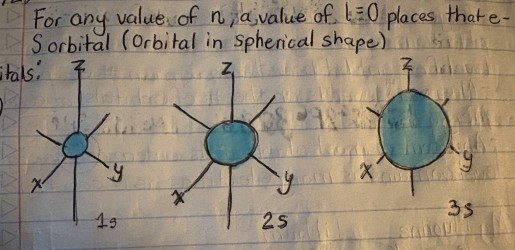 For any value of n, a value of l=0 places that e-
S orbital (Orbital in Spherical shape)
itals:
Z Z Z
x y x y x y
1s 2s 3s